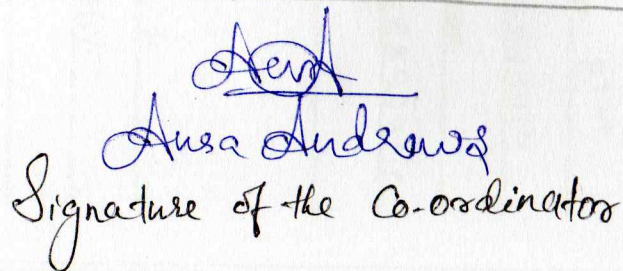 Ansa Andrews
Signature of the Co-ordinator